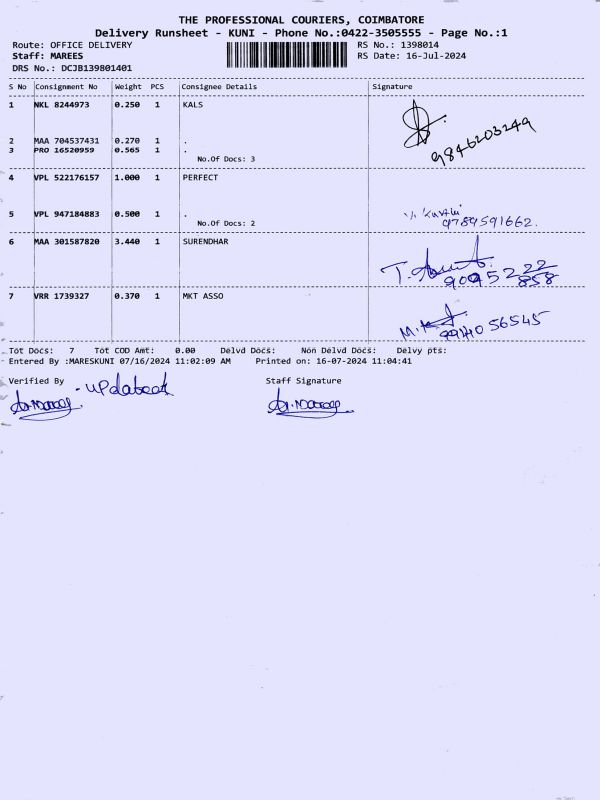 THE PROFESSIONAL COURIERS, COIMBATORE
Delivery Runsheet - KUNI - Phone No.:0422-3505555 - Page No.:1
Route: OFFICE DELIVERY RS No.: 1398014
Staff: MAREES RS Date: 16-Jul-2024
DRS No.: DCJB139801401
S No Consignment No Weight PCS Consignee Details Signature
1 NKL 8244973 0.250 1 KALS
9846203249
2 MAA 704537431 0.270 1 .
3 PRO 16520959 0.565 1 .
No.Of Docs: 3
4 VPL 522176157 1.000 1 PERFECT
5 VPL 947184883 0.500 1 .
9789591662.
No.Of Docs: 2
6 MAA 301587820 3.440 1 SURENDHAR
7 VRR 1739327 0.370 1 MKT ASSO
56545
Tot Docs: 7 Tot COD Amt: 0.00 Delvd Docs: Non Delvd Docs: Delvy pts:
Entered By :MARESKUNI 07/16/2024 11:02:09 AM Printed on: 16-07-2024 11:04:41
Verified By Staff Signature